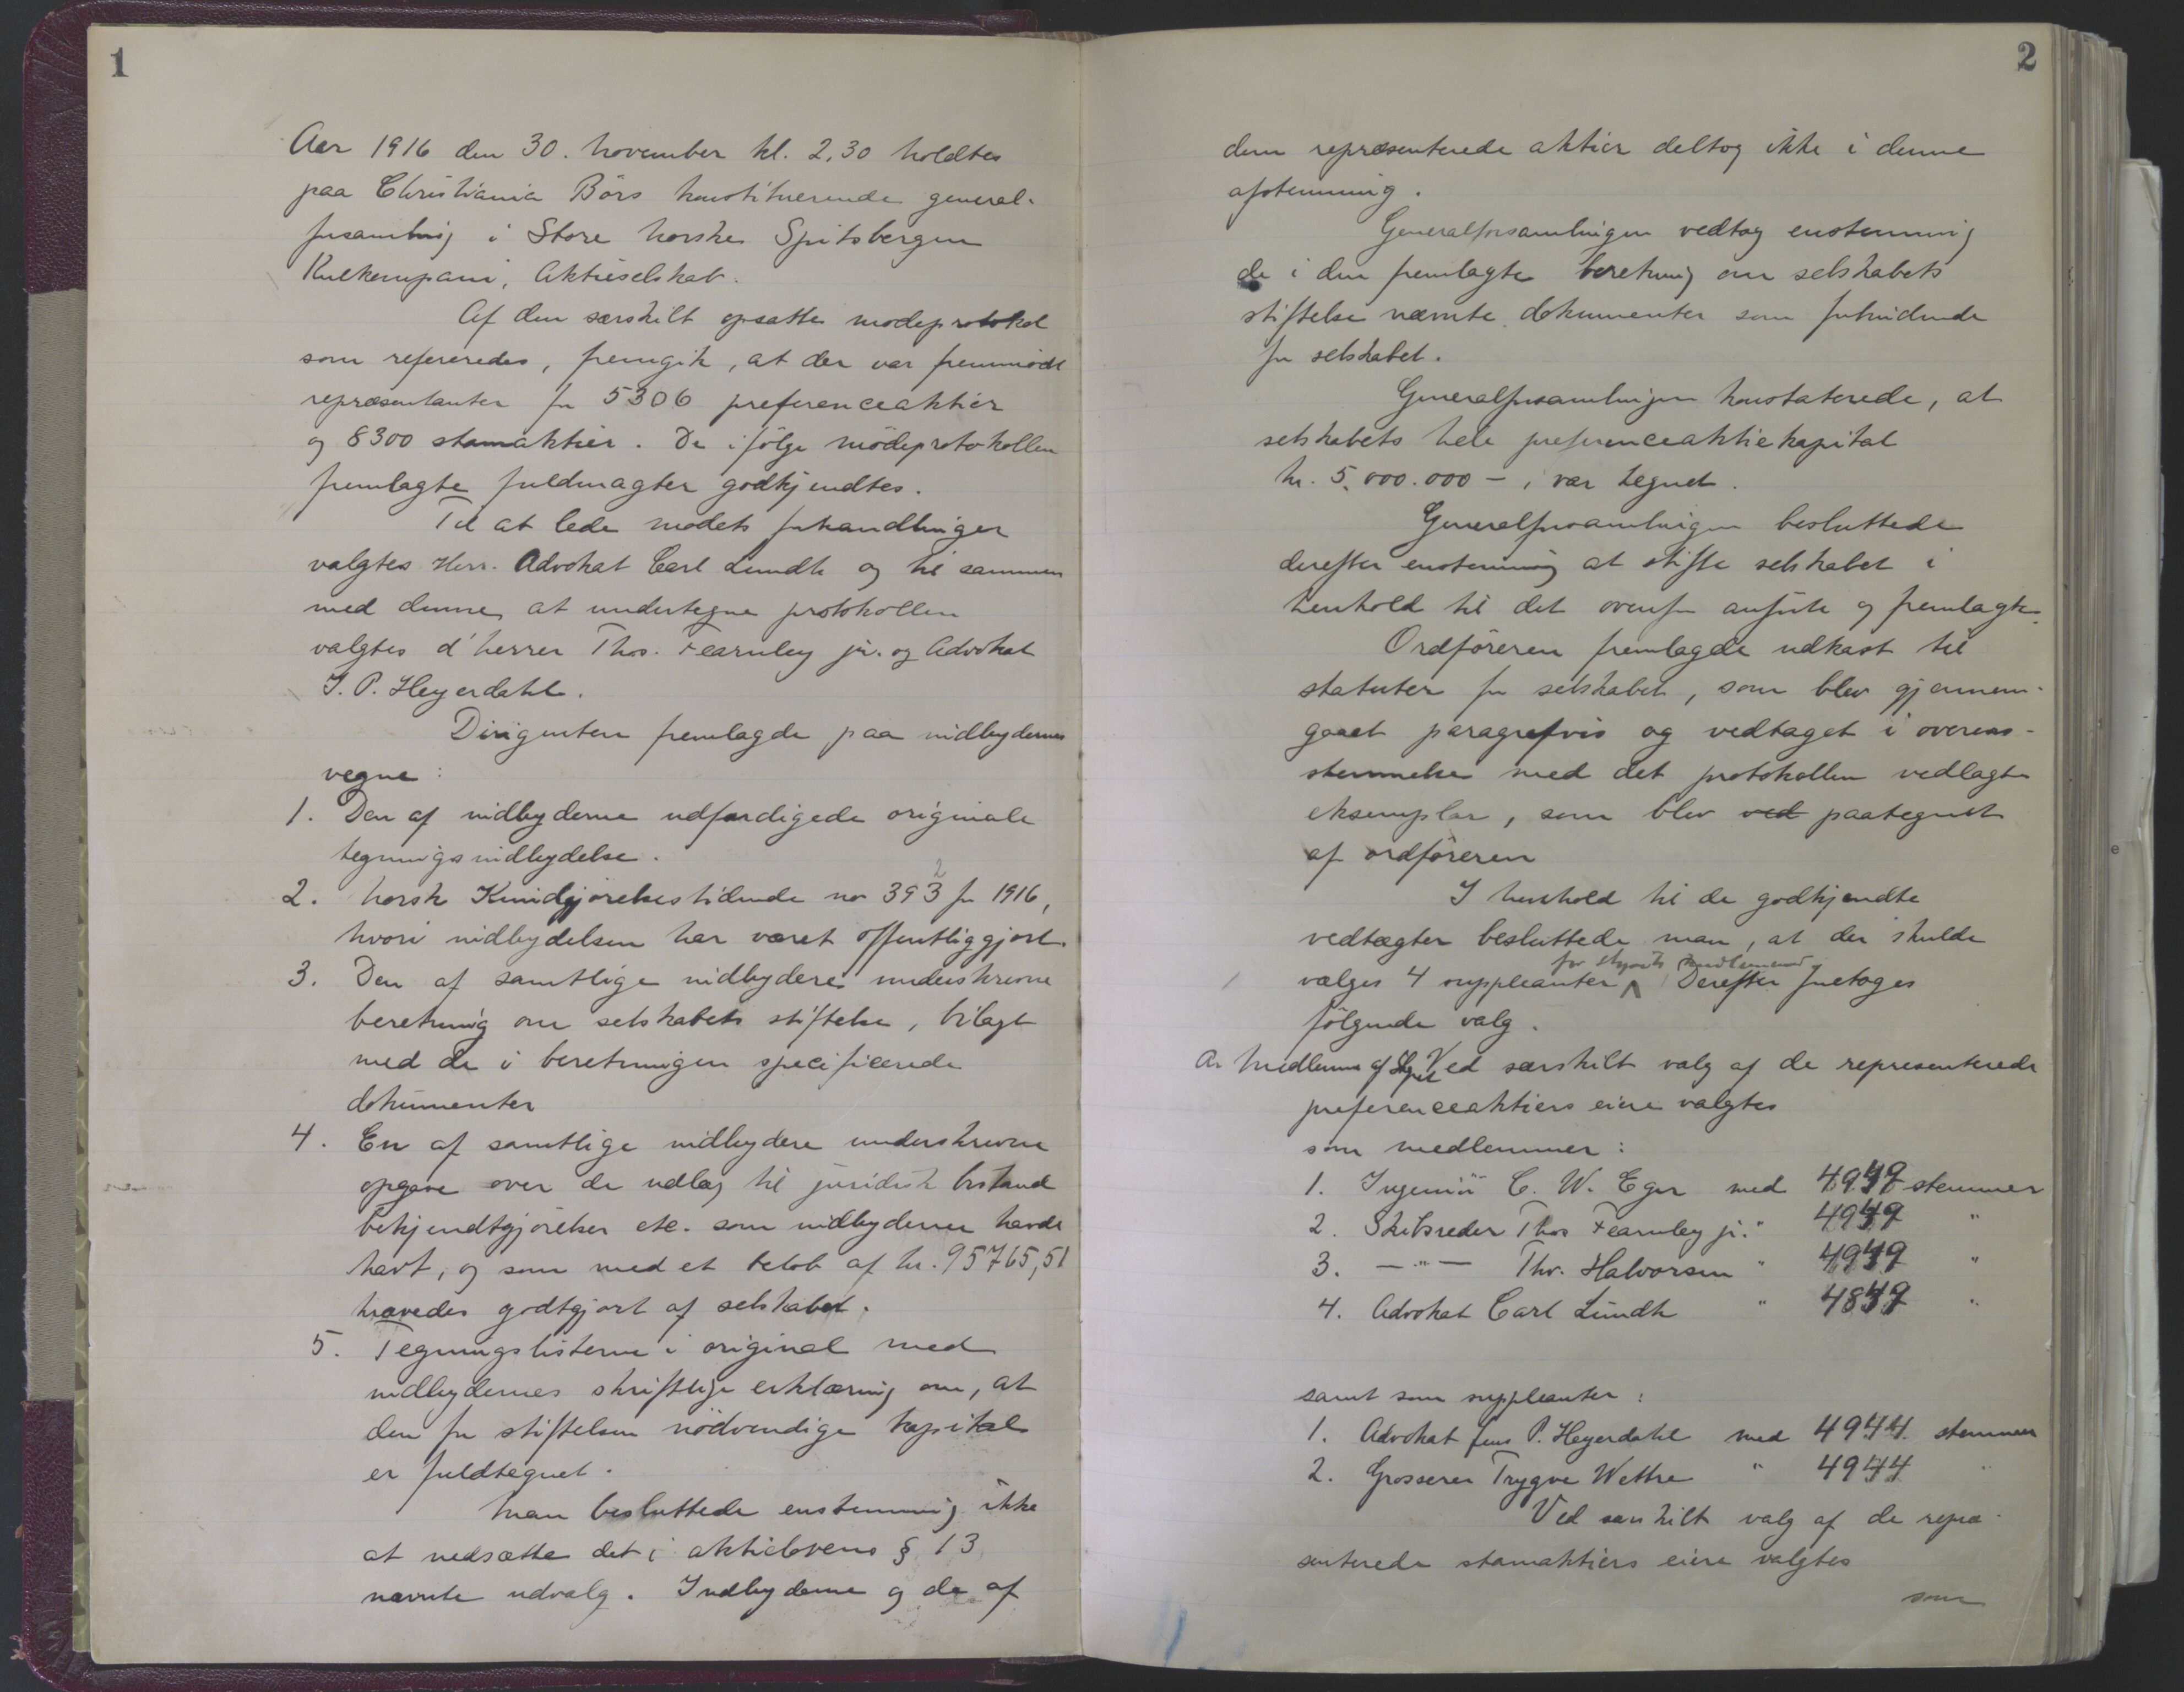 1
Aar 1916 den 30. november kl. 2,30 holdtes
paa Christiania Börs konstituerende general-
forsamling i Store Norske Spitsbergen
Kulkompani, Aktieselskab.
Af den særskilt opsatte mødeprotokol
som refereredes, fremgik, at der var fremmödt
repræsentanter for 5306 preferenceaktier
og 8300 stamaktier. De ifölge mödeprotokollen
fremlagte fuldmagter godkjendtes.
Til at lede mødets forhandlinger
valgtes Herr. Advokat Carl Lundh og til sammen
med denne at undertegne protokollen
valgtes d'herrer Thos. Fearnley jr. og Advokat
J. P. Heyerdahl.
Dirigenten fremlagde paa indbydernes
vegne:
1. Den af indbyderne udfærdigede originale
tegningsindbydelse.
2. Norsk Kundgjørelsestidende no 393 for 1916,
hvori indbydelsen har været offentliggjort.
3. Den af samtlige indbydere underskrevne
beretning om selskabets stiftelse, bilagt
med de i beretningen specificerede
dokumenter
4. En af samtlige indbydere underskreven
opgave over de udlæg til juridisk bistand
bekjendtgjørelser etc. som indbyderne havde
havt, og som med et beløb af kr. 95765,51
krævedes godtgjort af selskabet.
5. Tegningslisterne i original med
indbydernes skriftlige erklæring om, at
den for stiftelsen nödvendige kapital
er fuldtegnet.
Man besluttede enstemmig ikke
at nedsætte det i aktielovens § 13
nævnte udvalg. Indbyderne og de af
2
dem repræsenterede aktier deltog ikke i denne
afstemning.
Generalforsamlingen vedtog enstemmig
de i den fremlagte beretning om selskabets
stiftelse nævnte dokumenter som forbindende
for selskabet.
Generalforsamlingen konstaterede, at
selskabets hele preferenceaktiekapital
kr. 5.000.000 - , var tegnet.
Generalforsamlingen besluttede
derefter enstemmig at stifte selskabet i
henhold til det ovenfor anførte og fremlagte.
Ordföreren fremlagde udkast til
statuter for selskabet, som blev gjennem-
gaaet paragrafvis og vedtaget i overens-
stemmelse med det protokollen vedlagte
eksemplar, som blev ved paategnet
af ordföreren
I henhold til de godkjendte
vedtægter besluttede man, at der skulde
for styrets medlemmer
vælges 4 suppleanter. Derefter foretoges
fölgende valg.
A. Medlemmer af styret Ved særskilt valg af de representerede
preferenceaktiers eiere valgtes
som medlemmer:
1. Ingeniör C. W. Eger med 4949 stemmer
2. Skibsreder Thos Fearnley jr. " 4949 "
3. — " — Thv. Halvorsen " 4949 "
4. Advokat Carl Lundh " 4849 "
samt som suppleanter:
1. Advokat Jens P. Heyerdahl med 4944 stemmer
2. Grosserer Trygve Wettre " 4944 "
Ved særskilt valg af de repræ-
senterede stamaktiers eiere valgtes
som